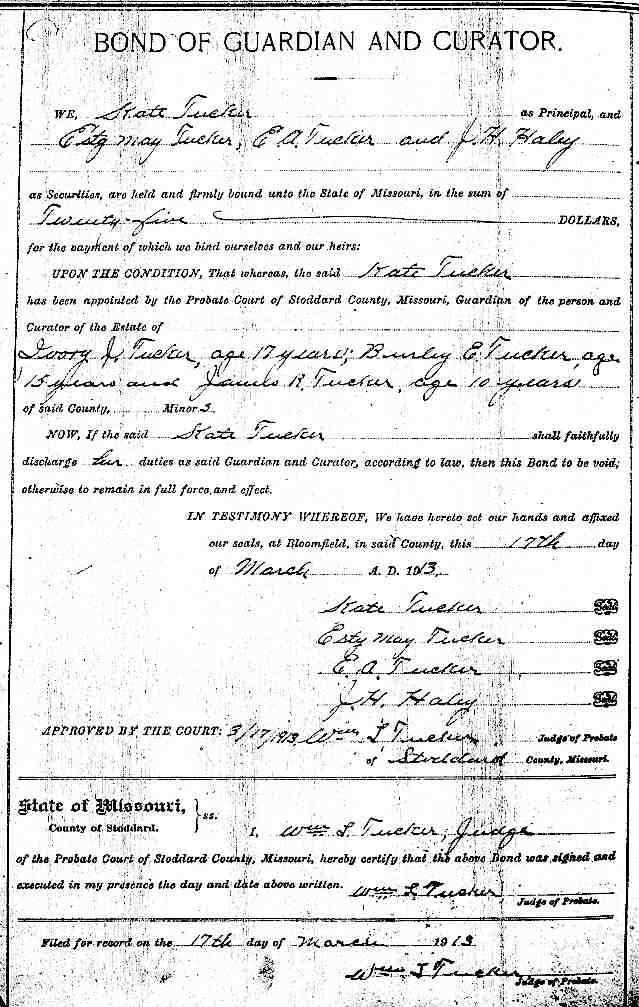 BOND OF GUARDIAN AND CURATOR.
WE, Kate Tucker as Principal, and
Esty May Tucker, E A. Tucker and J. H. Haley
as Securities, are held and firmly bound unto the State of Missouri, in the sum of
Twenty-five DOLLARS,
for the payment of which we bind ourselves and our heirs:
UPON THE CONDITION, That whereas, the said Kate Tucker
has been appointed by the Probate Court of Stoddard County, Missouri, Guardian of the person and
Curator of the Estate of
Ivory J. Tucker, age 17 years; Burley E. Tucker, age
15 years and James R. Tucker, age 10 years
of said County, Minors.
NOW, If the said Kate Tucker shall faithfully
discharge her duties as said Guardian and Curator, according to law, then this Bond to be void;
otherwise to remain in full force and effect.
IN TESTIMONY WHEREOF, We have hereto set our hands and affixed
our seals, at Bloomfield, in said County, this 17th day
of March A. D. 1913.
Kate Tucker Seal
Esty May Tucker Seal
E. A. Tucker Seal
J. H. Haley Seal
APPROVED BY THE COURT: 3/17/1913 Wm L Tucker Judge of Probate
of Stoddard County, Missouri.
State of Missouri,
County of Stoddard. } ss.
I, Wm L Tucker, Judge
of the Probate Court of Stoddard County, Missouri, hereby certify that the above Bond was signed and
executed in my presence the day and date above written. Wm L Tucker
Judge of Probate.
Filed for record on the 17th day of March 1913
Wm L Tucker
Judge of Probate.